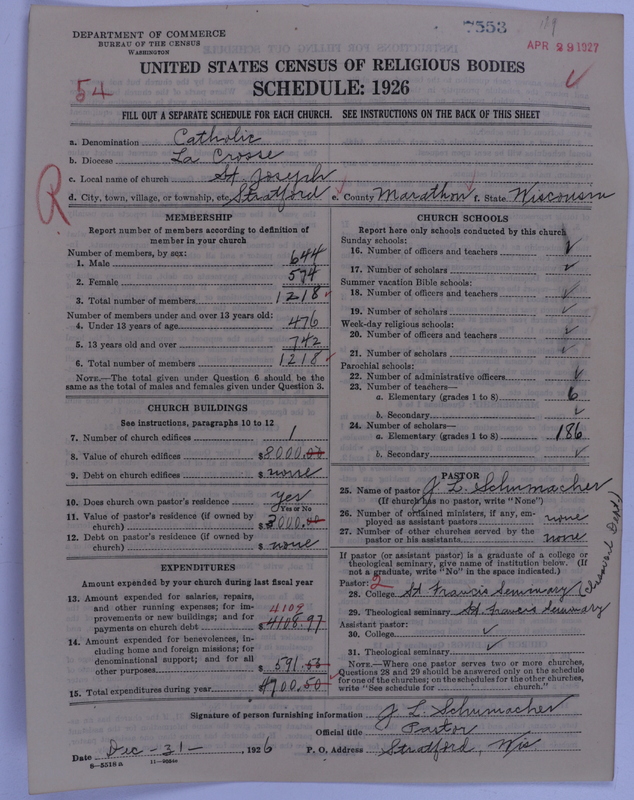 DEPARTMENT OF COMMERCE
BUREAU OF THE CENSUS
WASHINGTON
7553
189
APR 29 1927
UNITED STATES CENSUS OF RELIGIOUS BODIES
54
SCHEDULE: 1926
FILL OUT A SEPARATE SCHEDULE FOR EACH CHURCH. SEE INSTRUCTIONS ON THE BACK OF THIS SHEET
a. Denomination Catholic
b. Diocese La Crosse
c. Local name of church St. Joseph
R
d. City, town, village, or township, etc. Stratford e. County Marathon f. State Wisconsin
MEMBERSHIP
Report number of members according to definition of
member in your church
Number of members, by sex:
1. Male 644
2. Female 574
3. Total number of members 1218
Number of members under and over 13 years old:
4. Under 13 years of age 476
5. 13 years old and over 742
6. Total number of members 1218
NOTE.—The total given under Question 6 should be the
same as the total of males and females given under Question 3.
CHURCH BUILDINGS
See instructions, paragraphs 10 to 12
7. Number of church edifices 1
8. Value of church edifices $8000.00
9. Debt on church edifices $ none
10. Does church own pastor's residence yes
Yes or No
11. Value of pastor's residence (if owned by
church) $3000.00
12. Debt on pastor's residence (if owned by
church) $ none
EXPENDITURES
Amount expended by your church during last fiscal year
13. Amount expended for salaries, repairs,
and other running expenses; for im-
provements or new buildings; and for
payments on church debt 4109 $4108.97
14. Amount expended for benevolences, in-
cluding home and foreign missions; for
denominational support; and for all
other purposes $ 591.53
15. Total expenditures during year $4700.50
CHURCH SCHOOLS
Report here only schools conducted by this church
Sunday schools:
16. Number of officers and teachers
17. Number of scholars
Summer vacation Bible schools:
18. Number of officers and teachers
19. Number of scholars
Week-day religious schools:
20. Number of officers and teachers
21. Number of scholars
Parochial schools:
22. Number of administrative officers
23. Number of teachers—
a. Elementary (grades 1 to 8) 6
b. Secondary
24. Number of scholars—
a. Elementary (grades 1 to 8) 186
b. Secondary
PASTOR
25. Name of pastor J. L. Schumacher
(If church has no pastor, write "None")
26. Number of ordained ministers, if any, em-
ployed as assistant pastors none
27. Number of other churches served by the
pastor or his assistants none
If pastor (or assistant pastor) is a graduate of a college or
theological seminary, give name of institution below. (If
not a graduate, write "No" in the space indicated.)
Pastor: 2
28. College St Francis Seminary (Classical Dept)
29. Theological seminary St. Francis Seminary
Assistant pastor:
30. College
31. Theological seminary
NOTE.—Where one pastor serves two or more churches,
Questions 28 and 29 should be answered only on the schedule
for one of the churches; on the schedules for the other churches,
write "See schedule for church."
Signature of person furnishing information J. L. Schumacher
Official title Pastor
Date Dec - 31 - , 1926 P. O. Address Stratford, Wis
8—5518 a